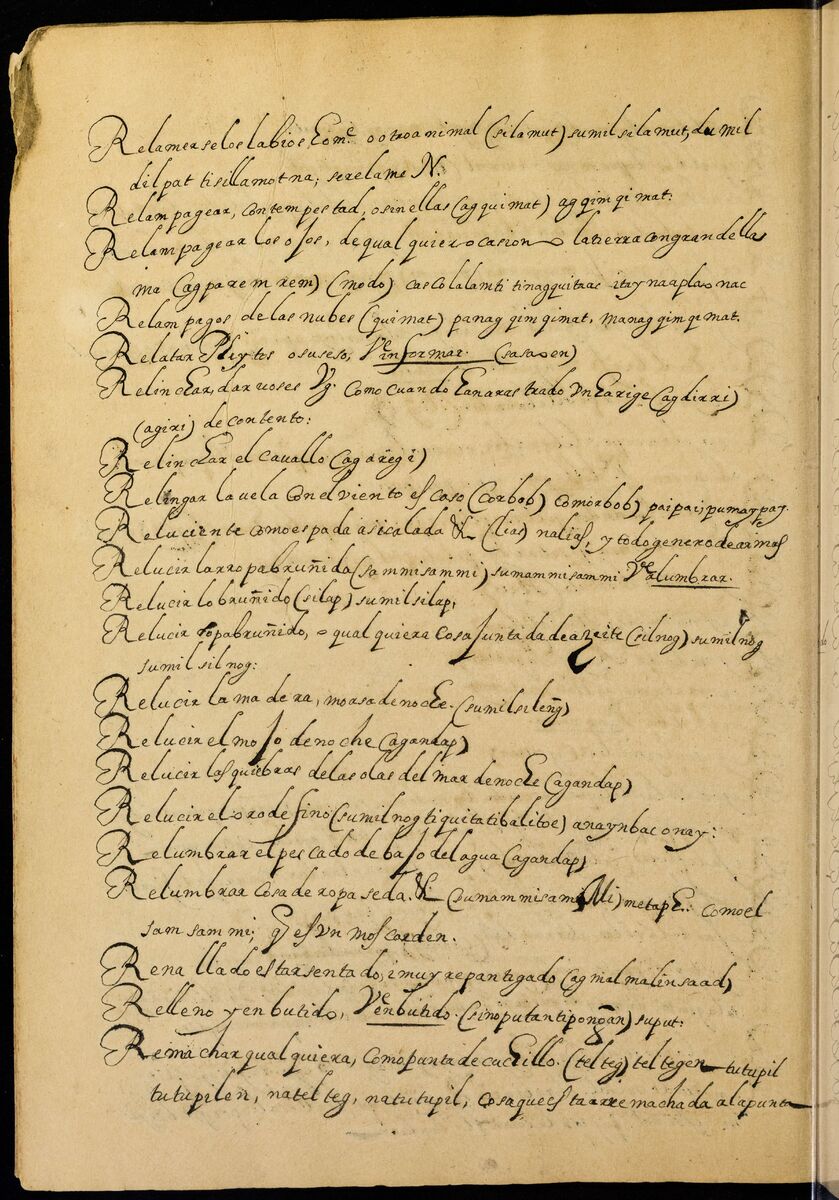 Relamerse los labios el ome. o otro animal (silamut) sumilsilamut, dumil
dilpat tisillamot na; serelame N.
Relampagear, con tempestad, o sin ellas (agquimat) agqimqimat:
Relampagear los ojos, de qualquier ocasion o la tierra con gran della
ma (agparemrem) (modo) cascolalamti tinagquitras itaynaaplao nac
Relampagos de las nubes (quimat) panagqimqimat, managqimqimat.
Relatar Pleytos o suseso, Ve informar. (sasaoen)
Relinchar, dar voses Vg. como cuando han arastrado vn harige (agdirri)
(agiri) de contento:
Relinchar el cavallo (agaregi)
Relingar la vela con el viento es caso (corbob) comorbob) paipai; pumaypay.
Reluciente como espada asicalada &c (lias) nalias, y todo genero de armas
Relucir la rropa bruñida (sammisammi) sumammisammi Ve alumbrar.
Relucir lo bruñido (silap) sumilsilap,
Relucir ropa bruñido, o qualquiera cosa juntada de azeite (silnog) sumilnog
sumilsilnog:
Relucir la madera, moasa de noche. (sumilsileng)
Relucir el mojo de noche (agandap)
Relucir las quiebras de las olas del mar de noche (agandap)
Relucir el oro de fino (sumilnog tiquita tibalitoc) anaynbaconay:
Relumbrar el pescado de bajo del agua (agandap)
Relumbrar cosa de ropa seda &c (sumammisammi) metaph. como el
samsammi; q es vn moscarden.
Renallado estar sentado, i muy repantigado (agmalmalinsaad)
Relleno y enbutido, Ve enbutido. (sinoputan tiponoan) suput:
Remachar qualquiera, como punta de cuchillo. (telteg) teltegen tutupil
tutupilen, natelteg, natutupil, cosa que esta arremachada a la punta